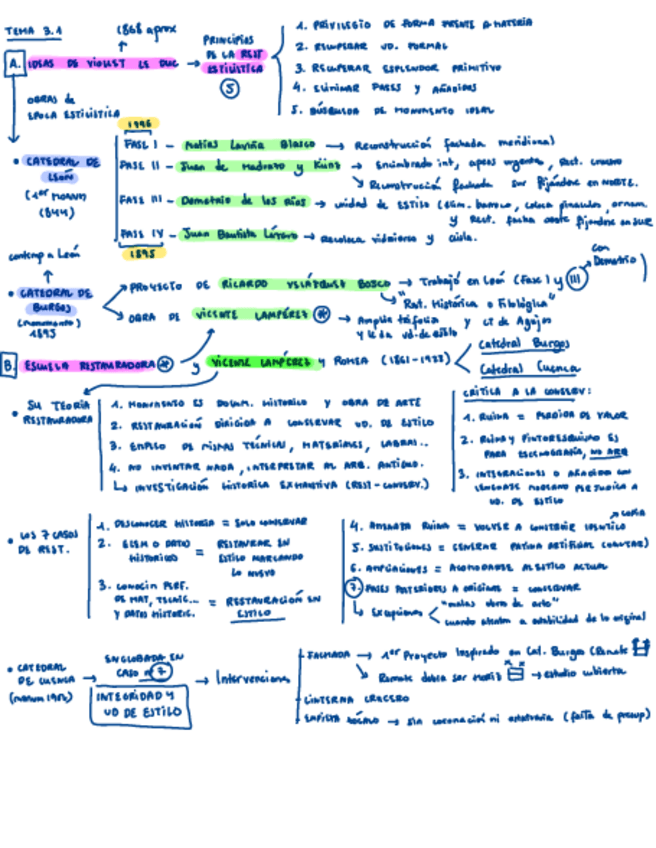 TEMA 3.1
1868 aprox
A. IDEAS DE VIOLLET LE DUC → PRINCIPIOS DE LA REST ESTILÍSTICA (5)
1. PRIVILEGIO DE FORMA FRENTE A MATERIA
2. RECUPERAR UD. FORMAL
3. RECUPERAR ESPLENDOR PRIMITIVO
4. ELIMINAR FASES Y AÑADIDOS
5. BÚSQUEDA DE MONUMENTO IDEAL
OBRAS de EPOCA ESTILÍSTICA
• CATEDRAL DE LEÓN
(1er MONUM 1844)
FASE I - Matías Laviña Blasco → Reconstrucción fachada meridional
FASE II - Juan de Madrazo y Küntz → Encimbrado int, apeos urgentes, Rest. crucero
↘ Reconstrucción fachada sur fijándose en NORTE.
FASE III - Demetrio de los Ríos → unidad de ESTILO (elim. barroco, coloca pináculos, ornam.
y Rest. facha oeste fijándose en SUR
FASE IV - Juan Bautista Lázaro → recoloca vidrieras y aísla.
1895
contemp a León
• CATEDRAL DE BURGOS
(monumento)
1895
PROYECTO DE RICARDO VELÁZQUEZ BOSCO → Trabajó en León (Fase I y III)
con Demetrio
"Rest. Histórica o Filológica"
OBRA DE VICENTE LAMPÉREZ * → Amplía trifolio y
y le da ud. de estilo
B. ESCUELA RESTAURADORA * y VICENTE LAMPÉREZ y ROMEA (1861-1923)
Catedral Burgos
Catedral Cuenca
• SU TEORÍA RESTAURADORA
1. MONUMENTO ES DOCUM. HISTORICO Y OBRA DE ARTE
2. RESTAURACIÓN DIRIGIDA A CONSERVAR UD. DE ESTILO
3. EMPLEO DE MISMAS TÉCNICAS, MATERIALES, LABRAS..
4. NO INVENTAR NADA, INTERPRETAR AL ARQ. ANTIGUO.
↳ INVESTIGACIÓN HISTORICA EXHAUSTIVA (REST-CONSERV.)
CRÍTICA A LA CONSERV:
1. RUINA = PERDIDA DE VALOR
2. RUINA Y PINTORESQUISMO ES PARA ESCENOGRAFÍA, NO ARQ
3. INTEGRACIONES O AÑADIDOS CON LENGUAJE MODERNO PERJUDICA A UD. DE ESTILO
• LOS 7 CASOS DE REST.
1. DESCONOCER HISTORIA = SOLO CONSERVAR
2. ELEM O DATOS HISTORICOS = RESTAURAR EN ESTILO MARCANDO LO NUEVO
3. CONOCEN PERF. DE MAT, TECNIC... Y DATOS HISTORIC. = RESTAURACIÓN EN ESTILO
4. AMENAZA RUINA = VOLVER A CONSTRUIR IDENTICO
COPIA
5. SUSTITUCIONES = GENERAR PATINA ARTIFICIAL
6. AMPLIACIONES = ACOMODARSE AL ESTILO ACTUAL
7. FASES POSTERIORES A ORIGINAL = CONSERVAR
↳ Excepciones
"malas obras de arte"
cuando atentan a estabilidad de lo original
• CATEDRAL DE CUENCA
(MONUM 1902)
ENGLOBADA EN CASO nº 7
INTEGRIDAD Y UD DE ESTILO
→ Intervenciones
- FACHADA → 1er Proyecto Inspirado en Cat. Burgos (Remate
↘ Remate debía ser → estudio cubierta
- LINTERNA CRUCERO
→ sin coronación ni estatuaria (falta de presup)